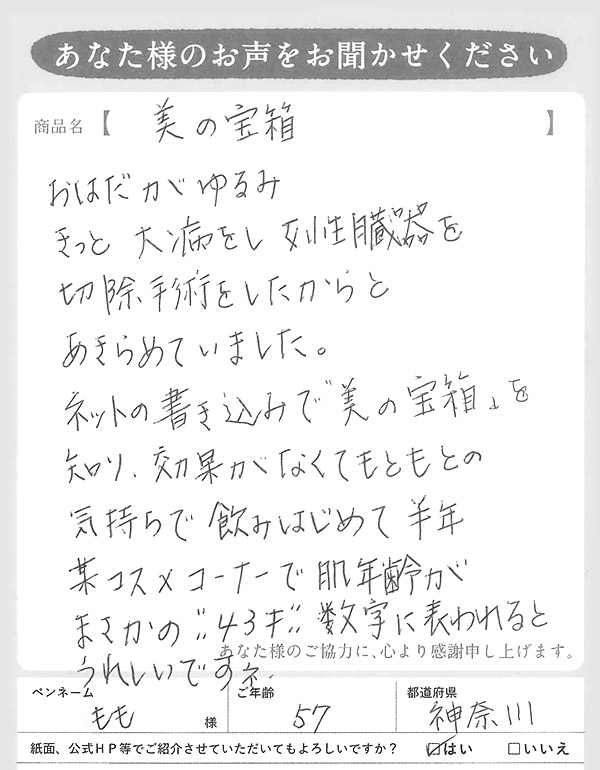 あなた様のお声をお聞かせください
商品名【 美の宝箱 】
おはだがゆるみ
きっと 大病をし 女性臓器を
切除手術をしたからと
あきらめていました。
ネットの書き込みで"美の宝箱"を
知り、効果がなくてもともとの
気持ちで 飲みはじめて 半年
某コスメコーナーで肌年齢が
まさかの"43才"数字に表われると
うれしいですネ.
あなた様のご協力に、心より感謝申し上げます。
ペンネーム もも 様 ご年齢 57 都道府県 神奈川
紙面、公式HP等でご紹介させていただいてもよろしいですか? ☑はい □いいえ